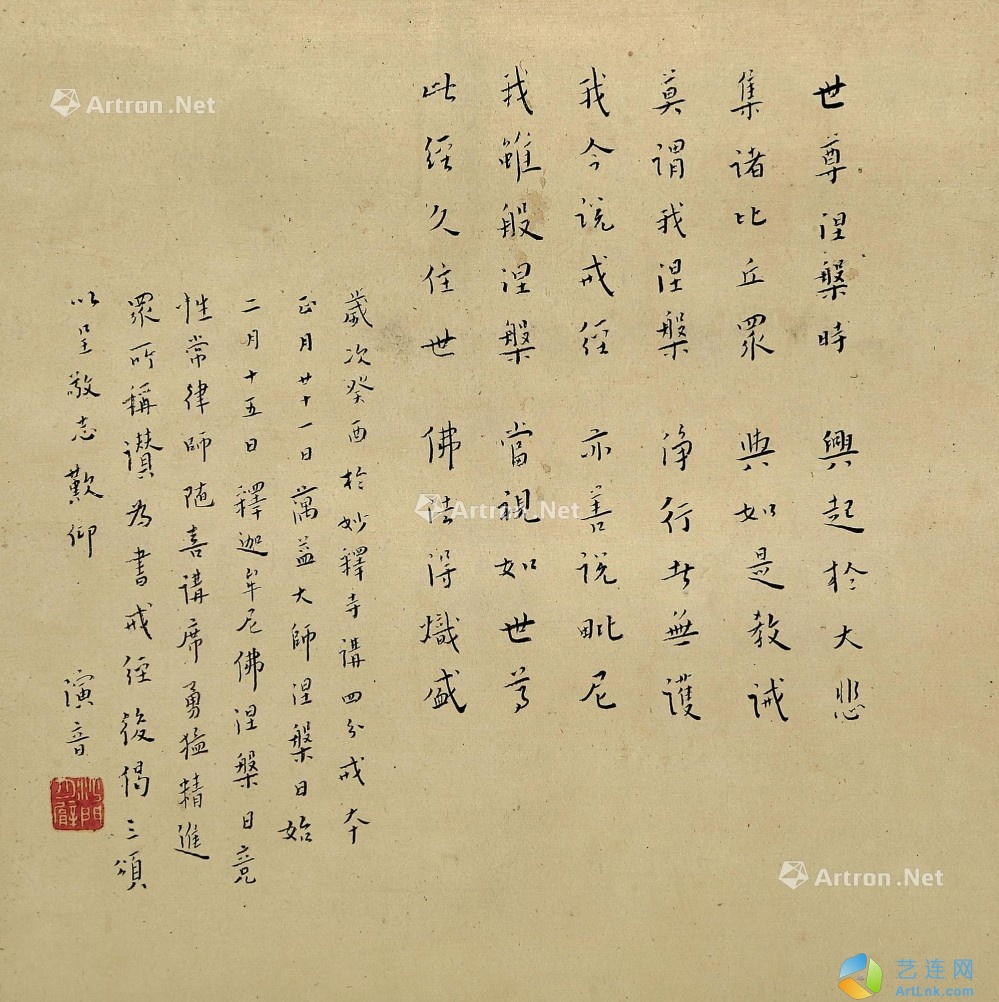 世尊涅槃時 興起於大悲
集諸比丘眾 與如是教誡
莫謂我涅槃 淨行者無護
我今說戒經 亦善說毗尼
我雖般涅槃 當視如世尊
此經久住世 佛法得熾盛
歲次癸酉於妙釋寺講四分戒本
正月廿十一日蕅益大師涅槃日始
二月十五日釋迦牟尼佛涅槃日竟
性常律師隨喜講席勇猛精進
眾所稱讚為書戒經後偈三頌
以呈敬志歎仰 演音
Artron.Net
Artron.Net
Artron.Net
艺连网
ArtLnk.com